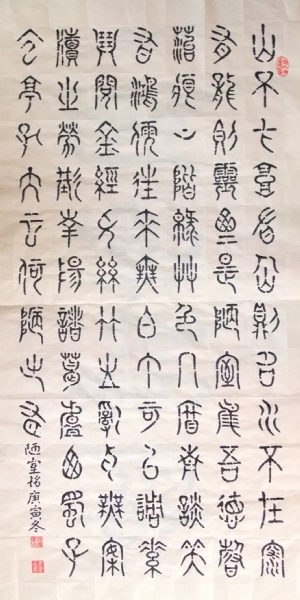 山不在高有仙則名水不在深
有龍則靈斯是陋室惟吾德馨
苔痕上階綠草色入簾青談笑
有鴻儒往來無白丁可以調素
琴閱金經無絲竹之亂耳無案
牘之勞形南陽諸葛廬西蜀子
雲亭孔子云何陋之有
陋室銘庚寅冬